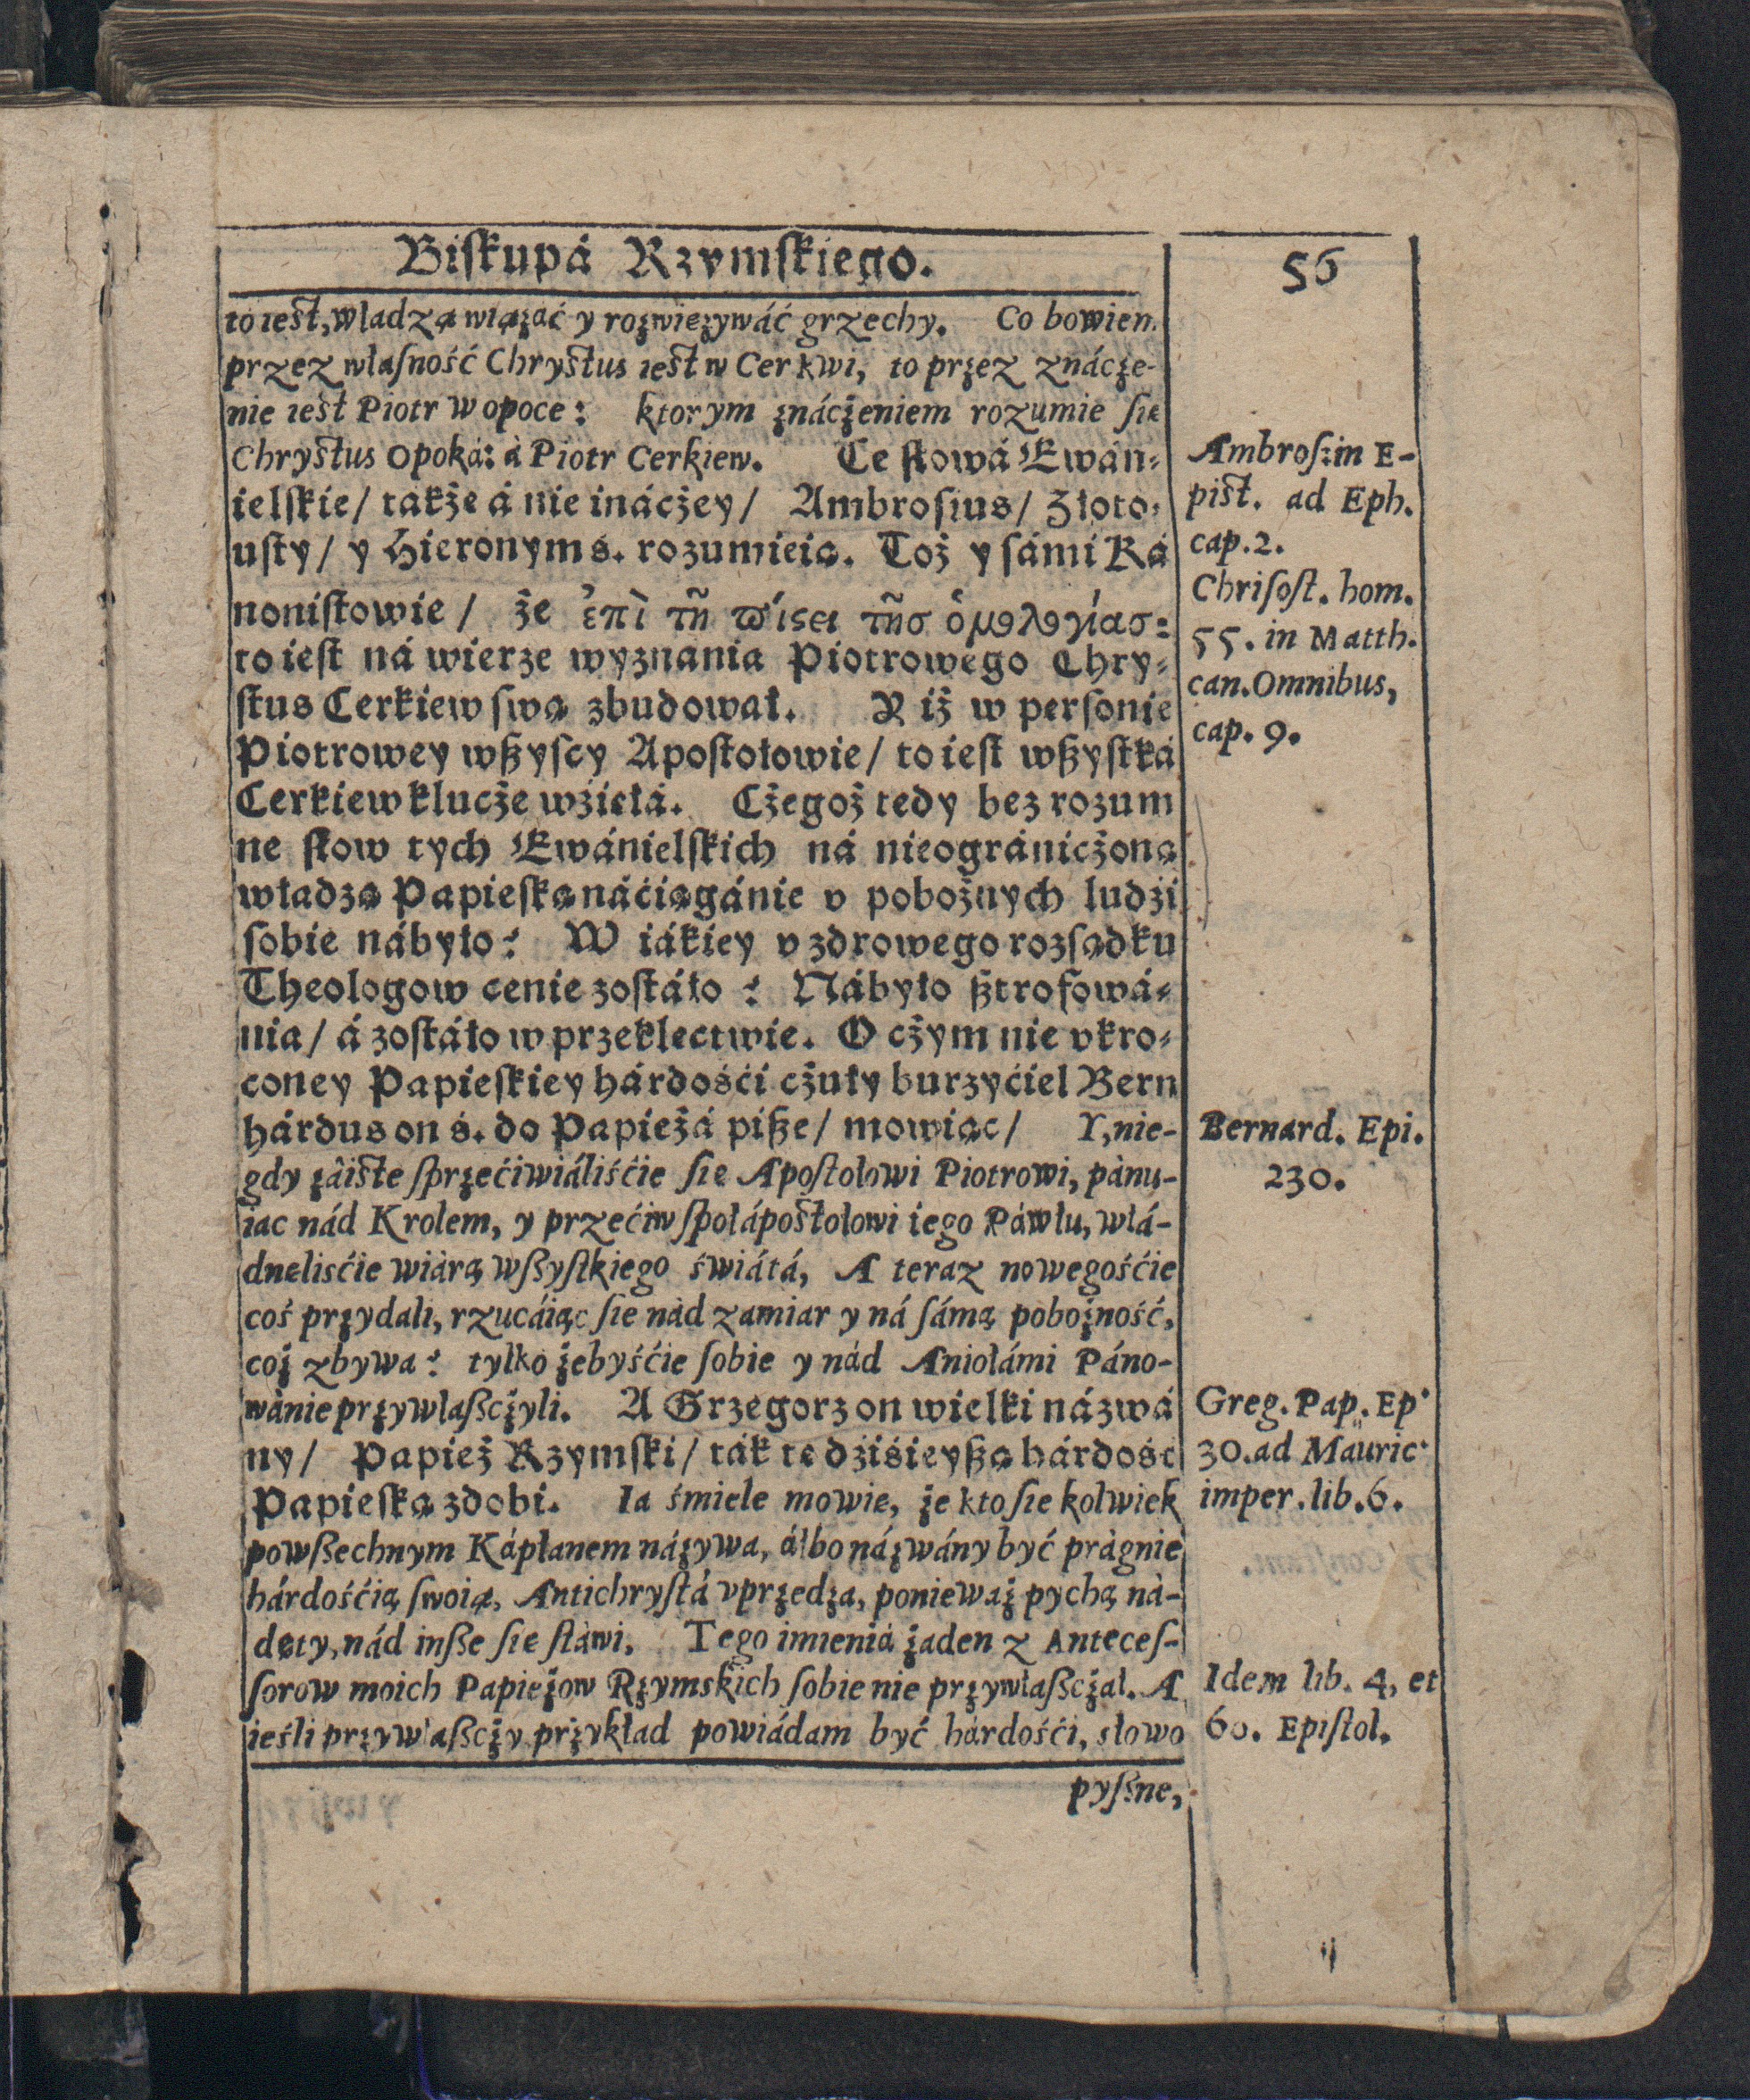 Biſkupá Rzymſkiego.
56
to ieſt, władzą wiązáć y rozwięzywáć grzechy. Co bowiem
przez właſność Chryſtus ieſt w Cerkwi, to przez znácże-
nie ieſt Piotr w opoce: ktorym znácżeniem rozumie ſię
Chryſtus Opoká: á Piotr Cerkiew. Te ſłowá Ewán-
ielſkie/ tákże á nie inácżey/ Ambroſius/ Złoto-
uſty/ y Hieronym ś. rozumieią. Toż y ſámi Ká
noniſtowie/ że ἐπὶ τῆ πίϛει τῆσ ὁμολογίασ:
to ieſt ná wierze wyznania Piotrowego Chry-
ſtus Cerkiew ſwą zbudował. Y iż w perſonie
Piotrowey wßyſcy Apoſtołowie/ to ieſt wßyſtká
Cerkiew klucże wźięłá. Cżegoż tedy bez rozum
ne ſłow tych Ewánielſkich ná nieogránicżoną
władzą Papieſką náćiągánie v pobożnych ludźi
ſobie nábyło? W iákiey v zdrowego rozſądku
Theologow cenie zoſtáło? Nábyło ßtrofowá-
nia/ á zoſtáło w przeklęctwie. O cżym nie vkro-
coney Papieſkiey hárdośći cżuły burzyćiel Bern
hárdus on ś. do Papieżá piße/ mowiąc/ Y, nie-
gdy záiſte ſprzećiwiáliśćie ſię Apoſtołowi Piotrowi, pánu-
iąc nád Krolem, y przećiw ſpołápoſtołowi iego Páwłu, włá-
dnęliśćie wiárą wßyſtkiego świátá, A teraz nowegośćie
coś przydali, rzucáiąc ſię nád zamiar y ná ſámą pobożność,
coż zbywa? tylko żebyśćie ſobie y nád Aniołámi Páno-
wánie przywłaßcżyli. A Grzegorz on wielki názwá
ny/ Papież Rzymſki/ ták tę dźiśieyßą hárdość
Papieſką zdobi. Ia śmiele mowię, że kto ſię kolwiek
powßechnym Kápłanem názywa, álbo názwány być prágnie
hárdośćią ſwoią, Antichryſtá vprzedza, ponieważ pychą ná-
dęty, nád inße ſię ſtáwi. Tego imieniá żaden z Anteceſ-
ſorow moich Papieżow Rzymskich ſobie nie przywłaßcżał. A
ieśli przywłaßcży przykład powiádam być hárdośći, słowo
pyßne,
Ambroſ: in E-
piſt. ad Eph.
cap. 2.
Chriſoſt. hom.
55. in Matth.
can. Omnibus,
cap. 9.
Bernard. Epi.
230.
Greg. Pap. Ep.
30. ad Mauric.
imper. lib. 6.
Idem lib. 4, et
60. Epiſtol.